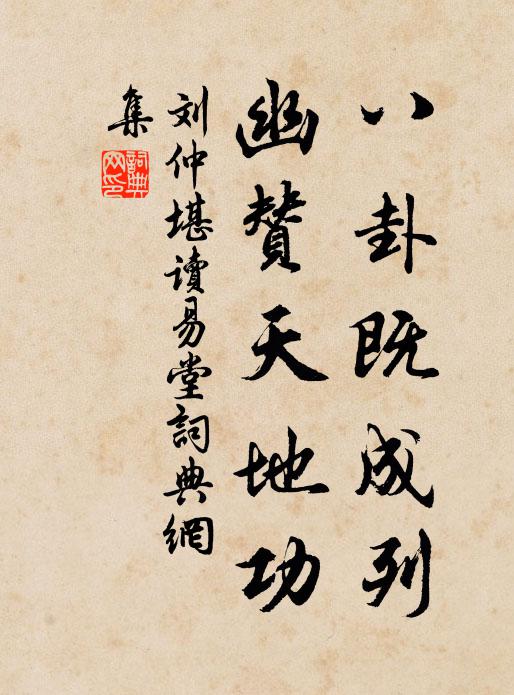 八卦既成列
幽赞天地功
刘仲堪读易堂詞典網
集
詞典网印